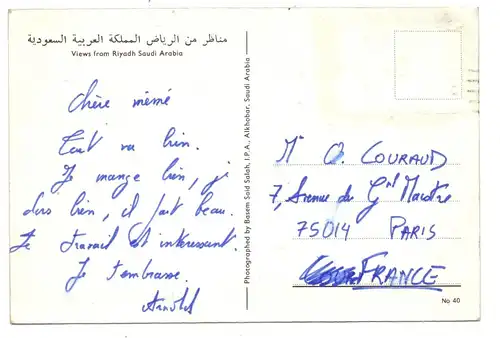 مناظر من الرياض المملكة العربية السعودية
Views from Riyadh Saudi Arabia
Chère mémé
Tout va bien.
Je mange bien, je
dors bien, il fait beau.
Le travail est intéressant.
Je t'embrasse.
Arnold
Photographed by Basem Said Salah, I.P.A., Alkhobar, Saudi Arabia
O. COURAUD
7, Avenue du Gal Maistre
75014 PARIS
FRANCE
No 40